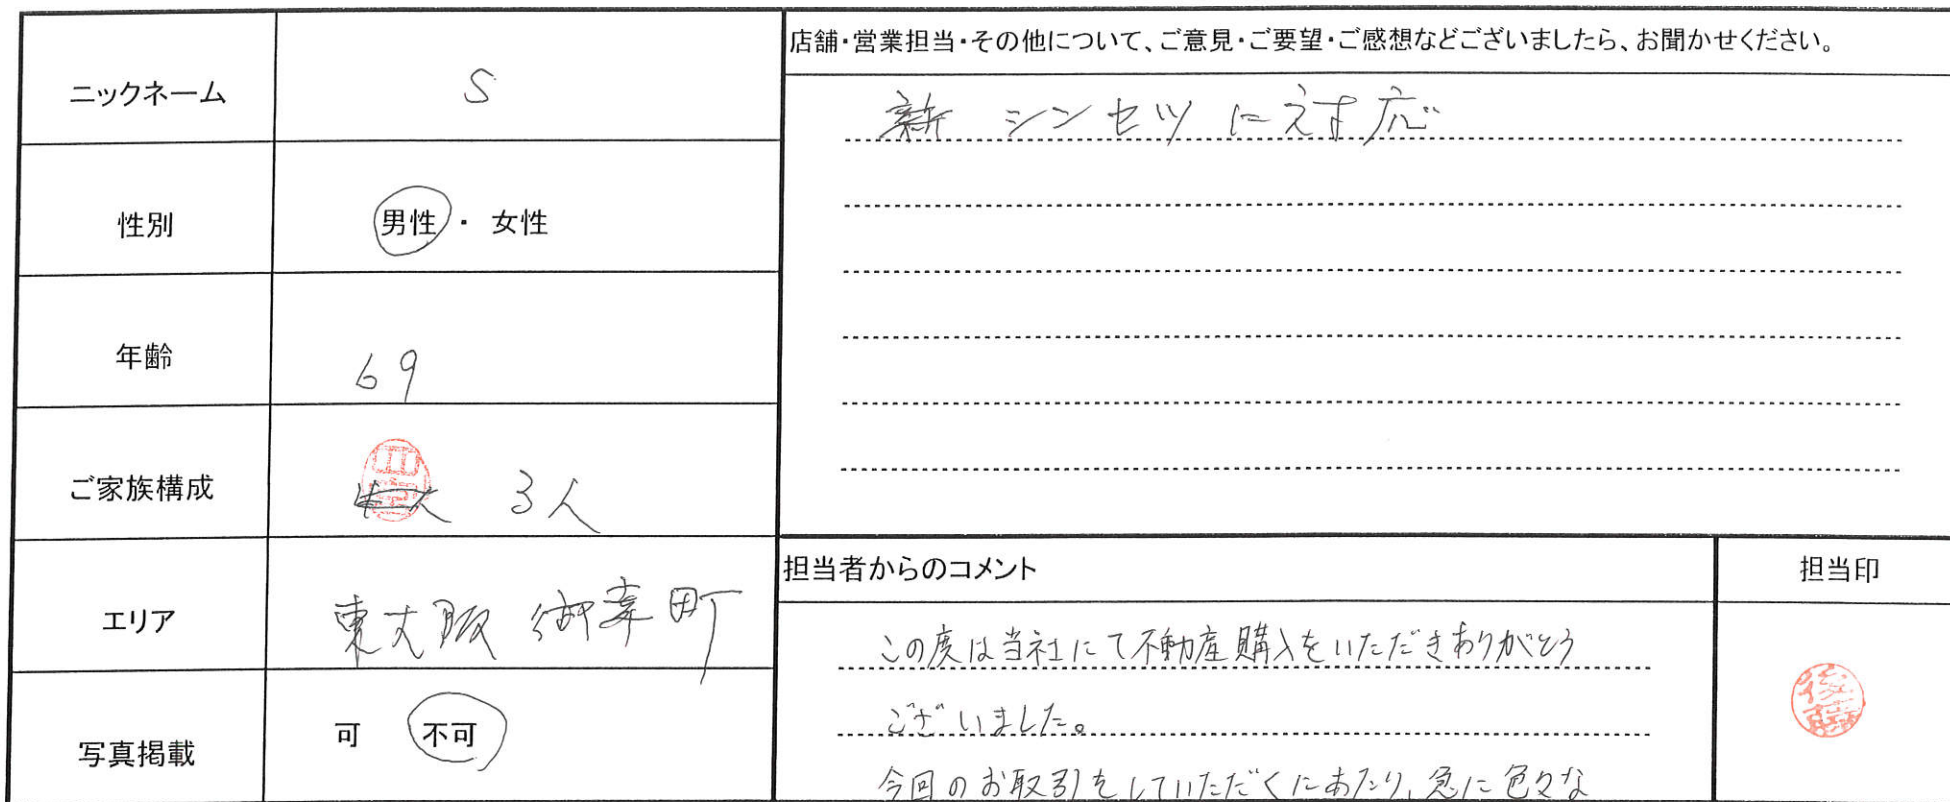 ニックネーム S
性別 男性 ・ 女性
年齢 69
ご家族構成 3人
エリア 東大阪 御幸町
写真掲載 可 不可
店舗・営業担当・その他について、ご意見・ご要望・ご感想などございましたら、お聞かせください。
シンセツに対応
担当者からのコメント
この度は当社にて不動産購入をいただきありがとう
ございました。
今回のお取引をしていただくにあたり、急に色々な
担当印
後藤